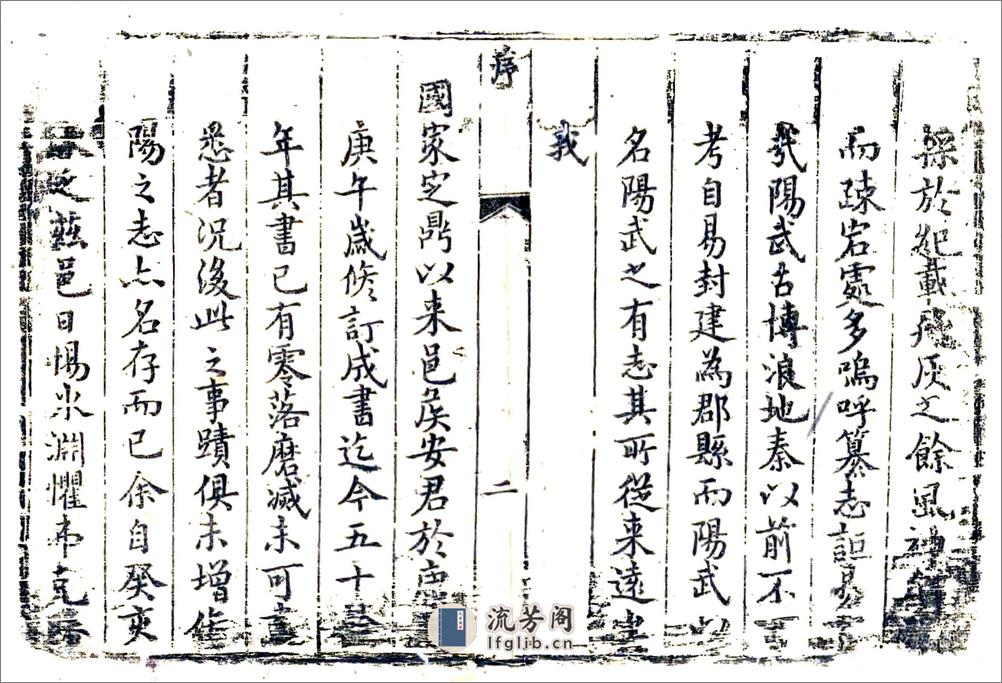 採於紀載殘灰之餘風
而疎宕處多嗚呼纂志詎易
哉陽武古博浪地秦以前不可
考自易封建為郡縣而陽武以
名陽武之有志其所從来遠
我
序
二
國家定鼎以来邑侯安君於康
庚午歲修訂成書迄今五十
年其書已有零落磨滅未可
悉者況後此之事蹟俱未增
陽之志亦名存而已余自癸亥
茲邑日惕氷淵懼弗克
流芳阁
lfglib.cn